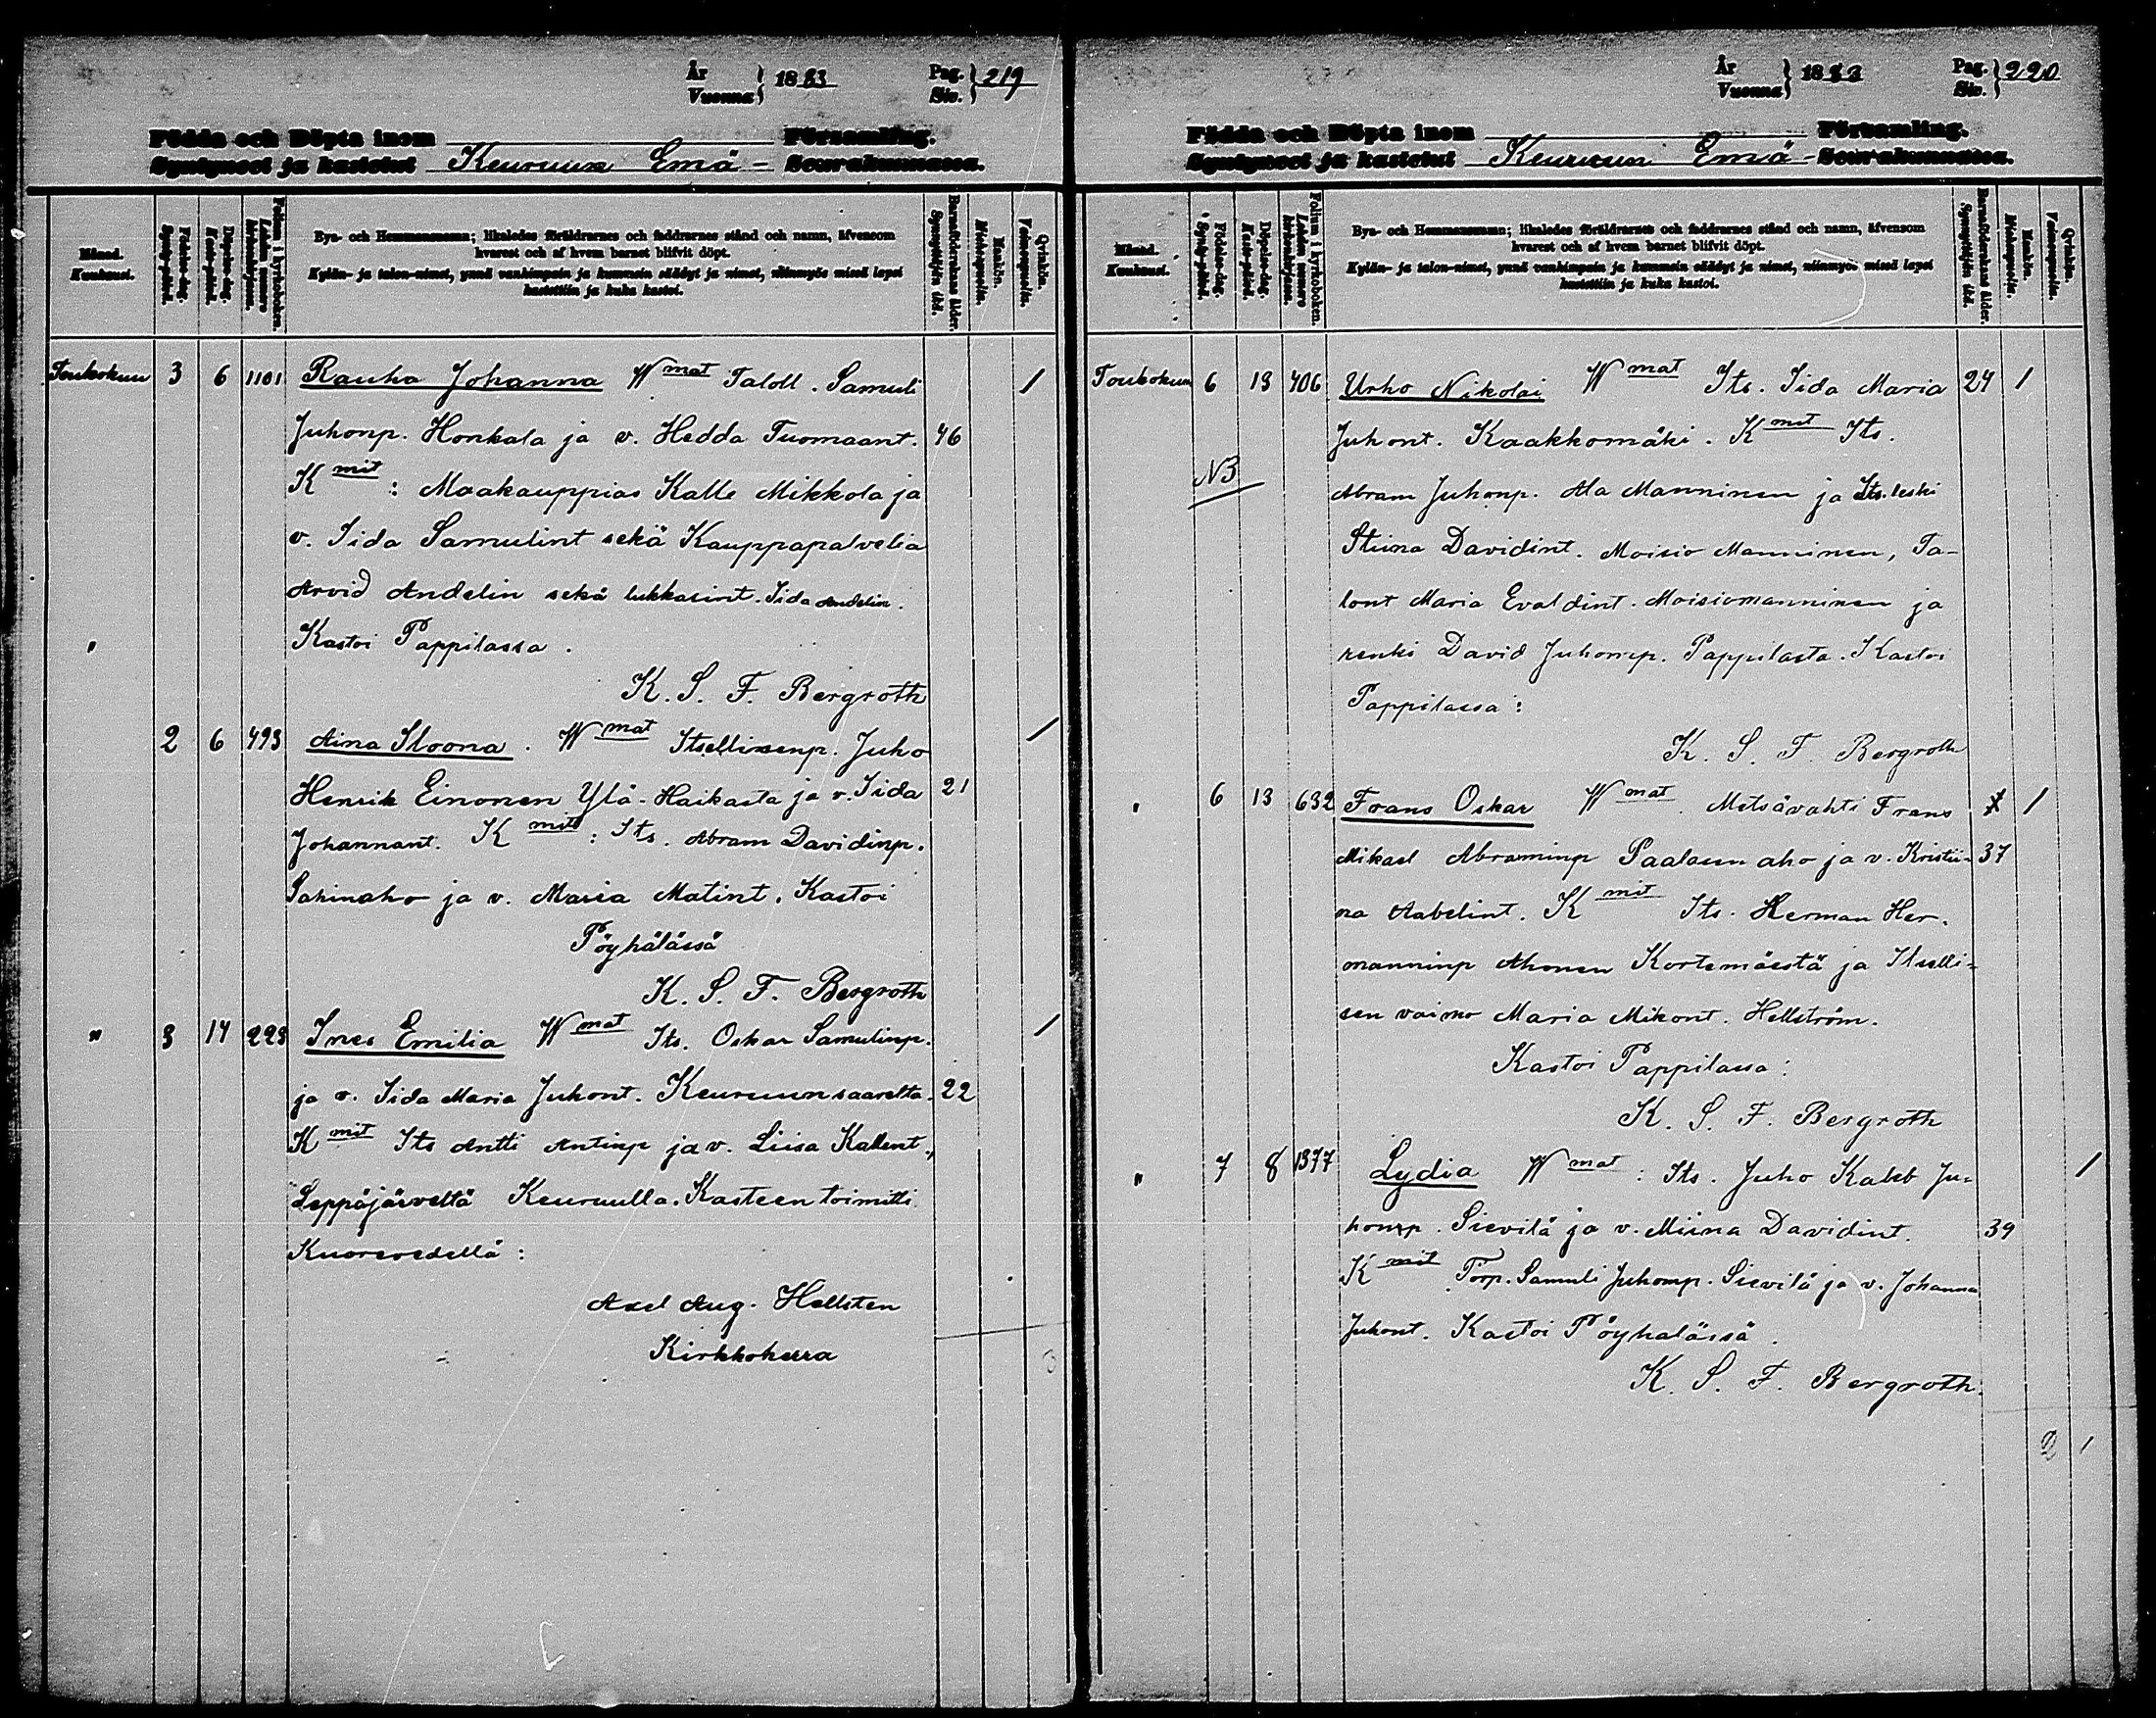 År
Vuonna } 1883 Pag.
Siv. } 219
Födda och Döpta inom Församling.
Syntyneet ja kastetut Keuruun Emä- Seurakunnassa.
Månad.
Kuukausi.
Födelse-dag.
Synty-päivä.
Döpelse-dag.
Kaste-päivä.
Folium i kyrkoboken.
Lehden numero
kirkonkirjassa.
Bya- och Hemmansnamn; likaledes föräldrarnes och faddrarnes stånd och namn, äfvensom
hvarest och af hvem barnet blifvit döpt.
Kylän- ja talon-nimet, ynnä vanhimpain ja kummein säädyt ja nimet, niinmyös missä lapsi
kastettiin ja kuka kastoi.
Barnaföderskans ålder.
Synnyttäjän ikä.
Mankön.
Miehenpuolia.
Qvinkön.
Vaimonpuolia.
Toukokuu 3 6 1101 Rauha Johanna W mat Taloll. Samuli 1
Juhonp. Honkala ja v. Hedda Tuomaant. 46
K mit : Maakauppias Kalle Mikkola ja
v. Iida Samulint sekä Kauppapalvelia
Arvid Andelin sekä lukkarint. Iida Andelin.
" Kastoi Pappilassa.
K. S. F. Bergroth
2 6 493 Aina Iloona. W mat Itsellisenp. Juho 1
Henrik Einonen Ylä-Haikasta ja v. Iida 21
Johannant. K mit : Its. Abram Davidinp.
Sahinaho ja v. Maria Matint. Kastoi
Pöyhälässä
K. S. F. Bergroth
" 3 14 223 Ines Emilia W mat Its. Oskar Samulinp. 1
ja v. Iida Maria Juhont. Keuruunsaarelta. 22
K mit Its Antti Antinp ja v. Liisa Kallent.,
Leppäjärveltä Keuruulla. Kasteen toimitti
Kuorevedellä:
Axel Aug. Hellsten
Kirkkoherra
3
År
Vuonna } 1883 Pag.
Siv. } 220
Födda och Döpta inom Församling.
Syntyneet ja kastetut Keuruun Emä- Seurakunnassa.
Månad.
Kuukausi.
Födelse-dag.
Synty-päivä.
Döpelse-dag.
Kaste-päivä.
Folium i kyrkoboken.
Lehden numero
kirkonkirjassa.
Bya- och Hemmansnamn; likaledes föräldrarnes och faddrarnes stånd och namn, äfvensom
hvarest och af hvem barnet blifvit döpt.
Kylän- ja talon-nimet, ynnä vanhimpain ja kummein säädyt ja nimet, niinmyös missä lapsi
kastettiin ja kuka kastoi.
Barnaföderskans ålder.
Synnyttäjän ikä.
Mankön.
Miehenpuolia.
Qvinkön.
Vaimonpuolia.
Toukokuu 6 13 406 Urho Nikolai W mat Its. Iida Maria 24 1
Juhont. Kaakkomäki. K mit Its.
NB Abram Juhonp. Ala Manninen ja Its. leski
Stiina Davidint. Moisio Manninen, Ta-
lont Maria Evaldint. Moisiomanninen ja
renki David Juhonp. Pappilasta. Kastoi
Pappilassa:
K. S. F. Bergroth
" 6 13 632 Frans Oskar W mat. Metsävahti Frans 1
Mikael Abraminp Paalasen aho ja v. Kristii- 37
na Aabelint. K mit Its. Herman Her-
manninp Ahonen Kortemäestä ja Itselli-
sen vaimo Maria Mikont. Hellström.
Kastoi Pappilassa:
K. S. F. Bergroth
" 7 8 1377 Lydia W mat : Its. Juho Kaleb Ju- 1
honp. Sievilä ja v. Miina Davidint. 39
K mit Torp. Samuli Juhonp. Sievilä ja v. Johanna
Juhont. Kastoi Pöyhälässä.
K. S. F. Bergroth.
2 1